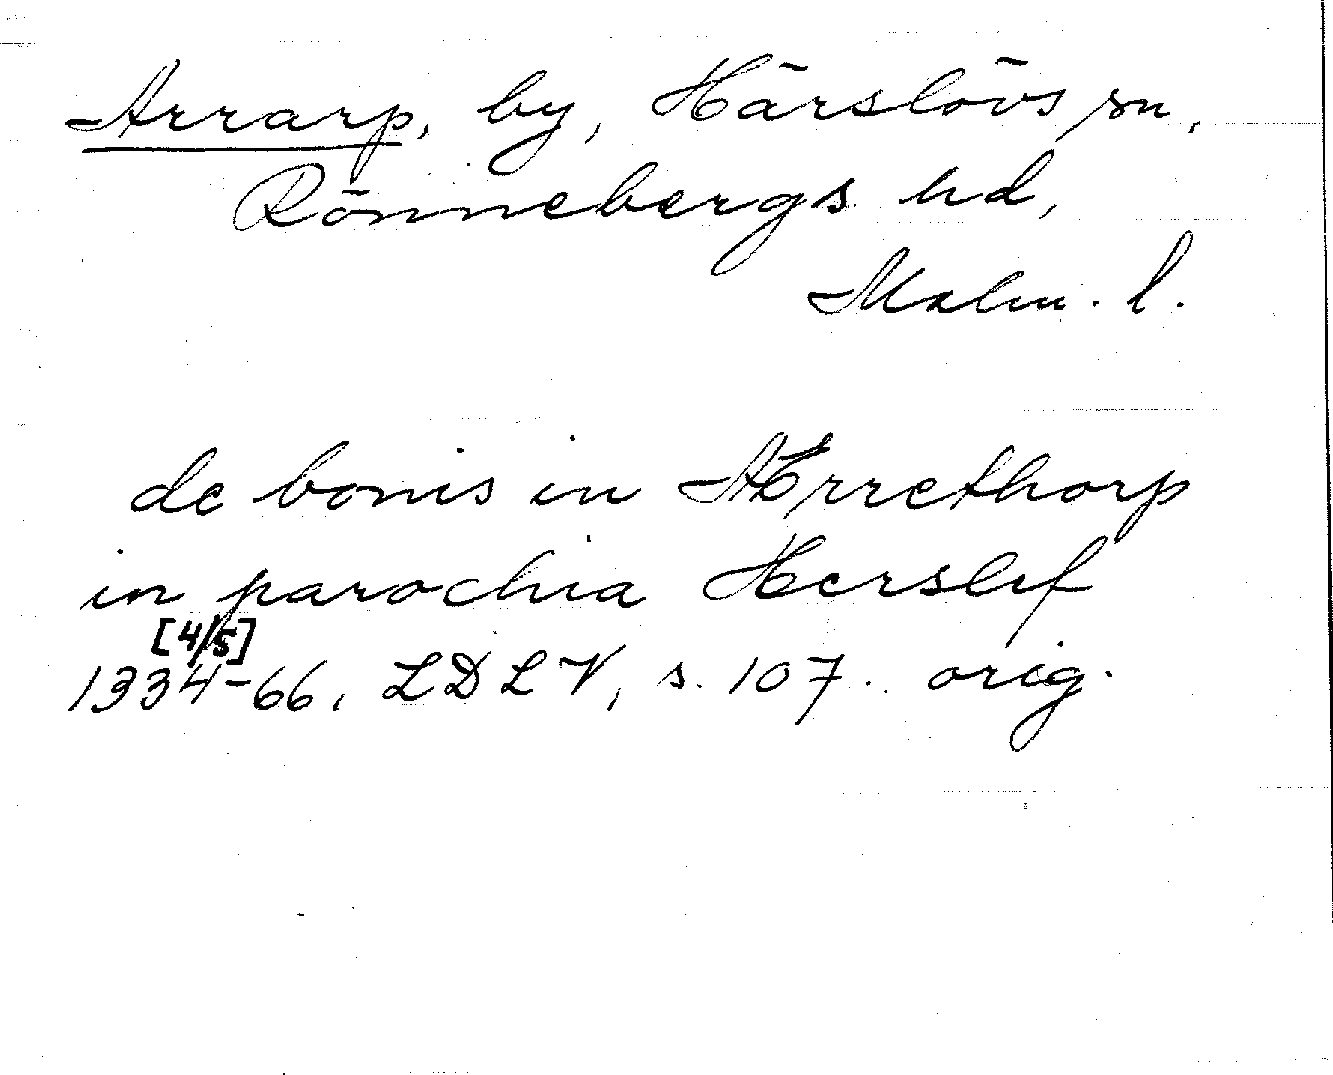 Arrarp, by, Härslövs sn,
Rönnebergs hd,
Malm. l.
de bonis in Ærrethorp
in parochia Herslef
[4/5]
1334-66, LDLV, s. 107. orig.